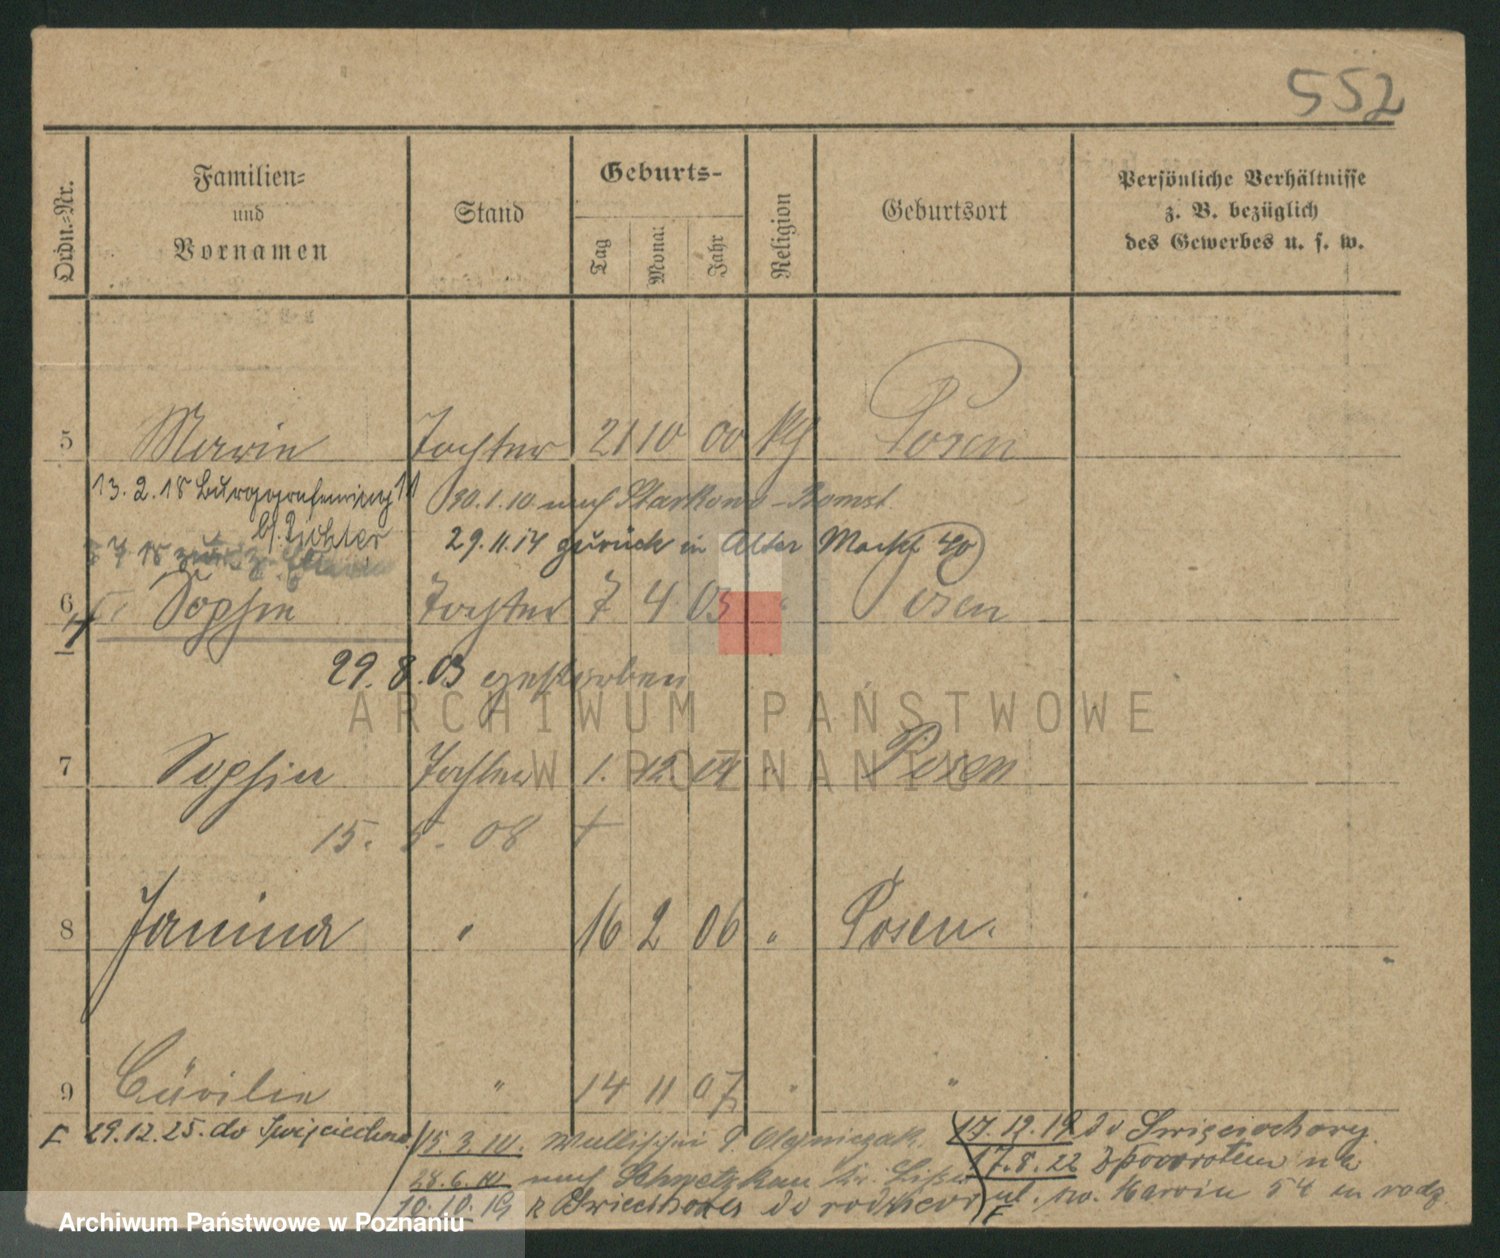 552
Ordn.-Nr.
Familien-
und
Vornamen
Stand
Geburts-
Tag
Mona:
Jahr
Religion
Geburtsort
Persönliche Verhältnisse
z. B. bezüglich
des Gewerbes u. s. w.
5 Marie Tochter 21 10 00 kth Posen
13.2.18 Burggrafenring 11 30.1.10 nach Starkowo-Bomst.
b/. Richter 29.11.14 zurück in Alter Markt 40
6 Sophie Tochter 7 4 03 " Posen
29.8.03 gestorben
7 Sophie Tochter 1. 12. 04 " Posen
15. 5. 08 †
8 Janina " 16 2 06 " Posen.
9 Cäcilie " 14 11 07 " "
F 29.12.25. do
15.3.10.
17.12.19 do Święciochowy
nach Schwetzkau Kr. Lissa
17.8.22 z powrotem na
10.10.19 z do rodziców
ul. św. Marcin 54 m rodz.
F
ARCHIWUM PAŃSTWOWE
W POZNANIU
Archiwum Państwowe w Poznaniu